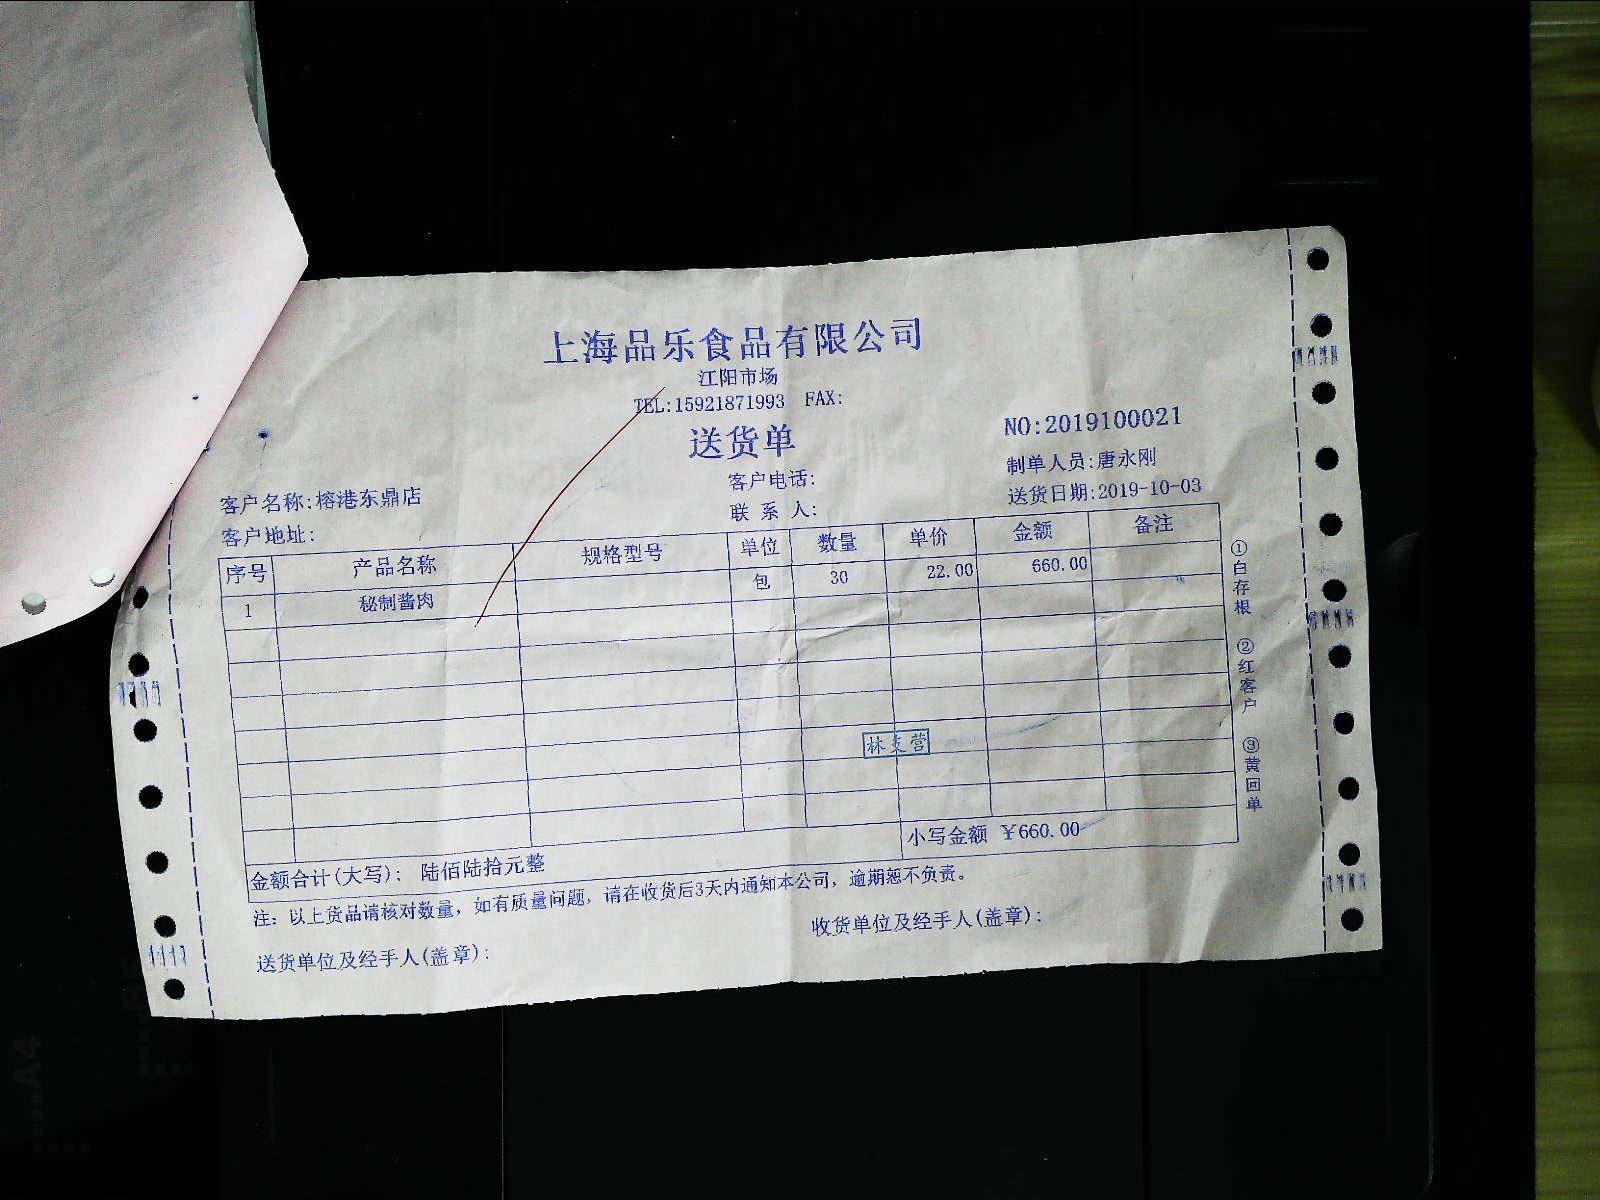 上海品乐食品有限公司
江阳市场
TEL:15921871993 FAX:
送货单
NO:2019100021
制单人员:唐永刚
客户名称:榕港东鼎店
客户电话:
送货日期:2019-10-03
客户地址:
联 系 人:
序号 产品名称 规格型号 单位 数量 单价 金额 备注
1 秘制酱肉 包 30 22.00 660.00
林支营
金额合计(大写): 陆佰陆拾元整 小写金额 ￥660.00
注: 以上货品请核对数量, 如有质量问题, 请在收货后3天内通知本公司, 逾期恕不负责。
送货单位及经手人(盖章): 收货单位及经手人(盖章):
①白存根 ②红客户 ③黄回单
A4